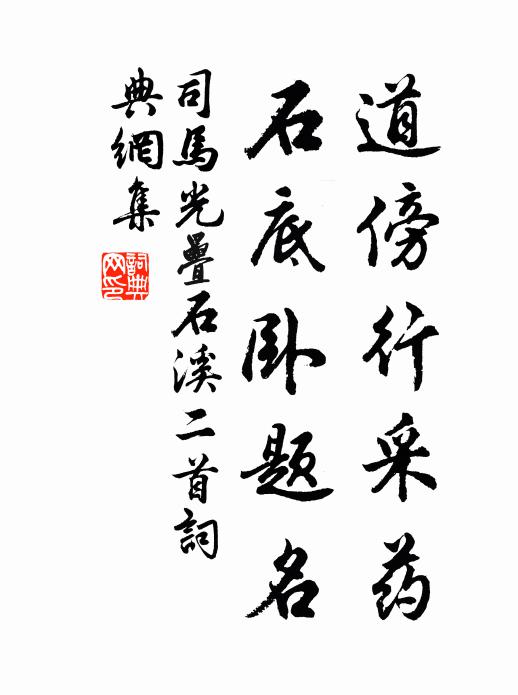 道傍行采药
石底卧题名
司馬光疊石溪二首詞
典網集
詞典网印